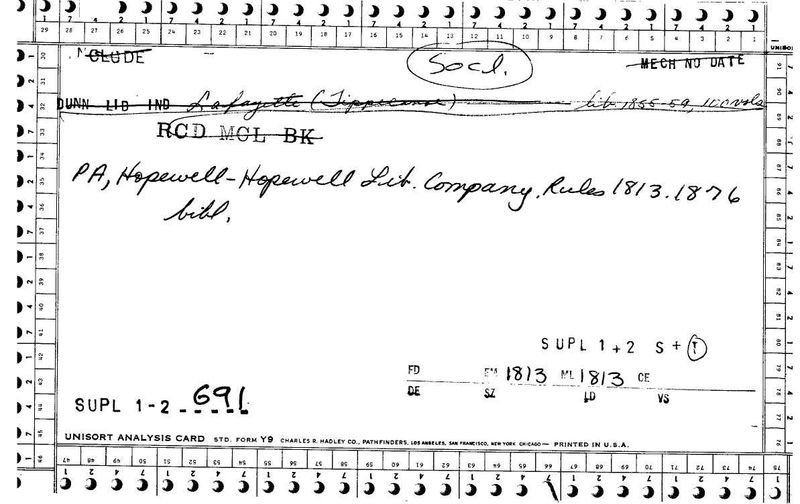 CLUDE
Socl.
MECH NO DATE
DUNN LIB IND Lafayette (Tippecanoe) lib 1855-59, 100 vols
RCD MCL BK
PA, Hopewell-Hopewell Lib. Company. Rules 1813. 1876
bibl.
SUPL 1+2 S+T
FD EM 1813 ML 1813 CE
DE SZ LD VS
SUPL 1-2 691
UNISORT ANALYSIS CARD STD. FORM Y9 CHARLES R. HADLEY CO., PATHFINDERS, LOS ANGELES, SAN FRANCISCO, NEW YORK CHICAGO — PRINTED IN U.S.A.